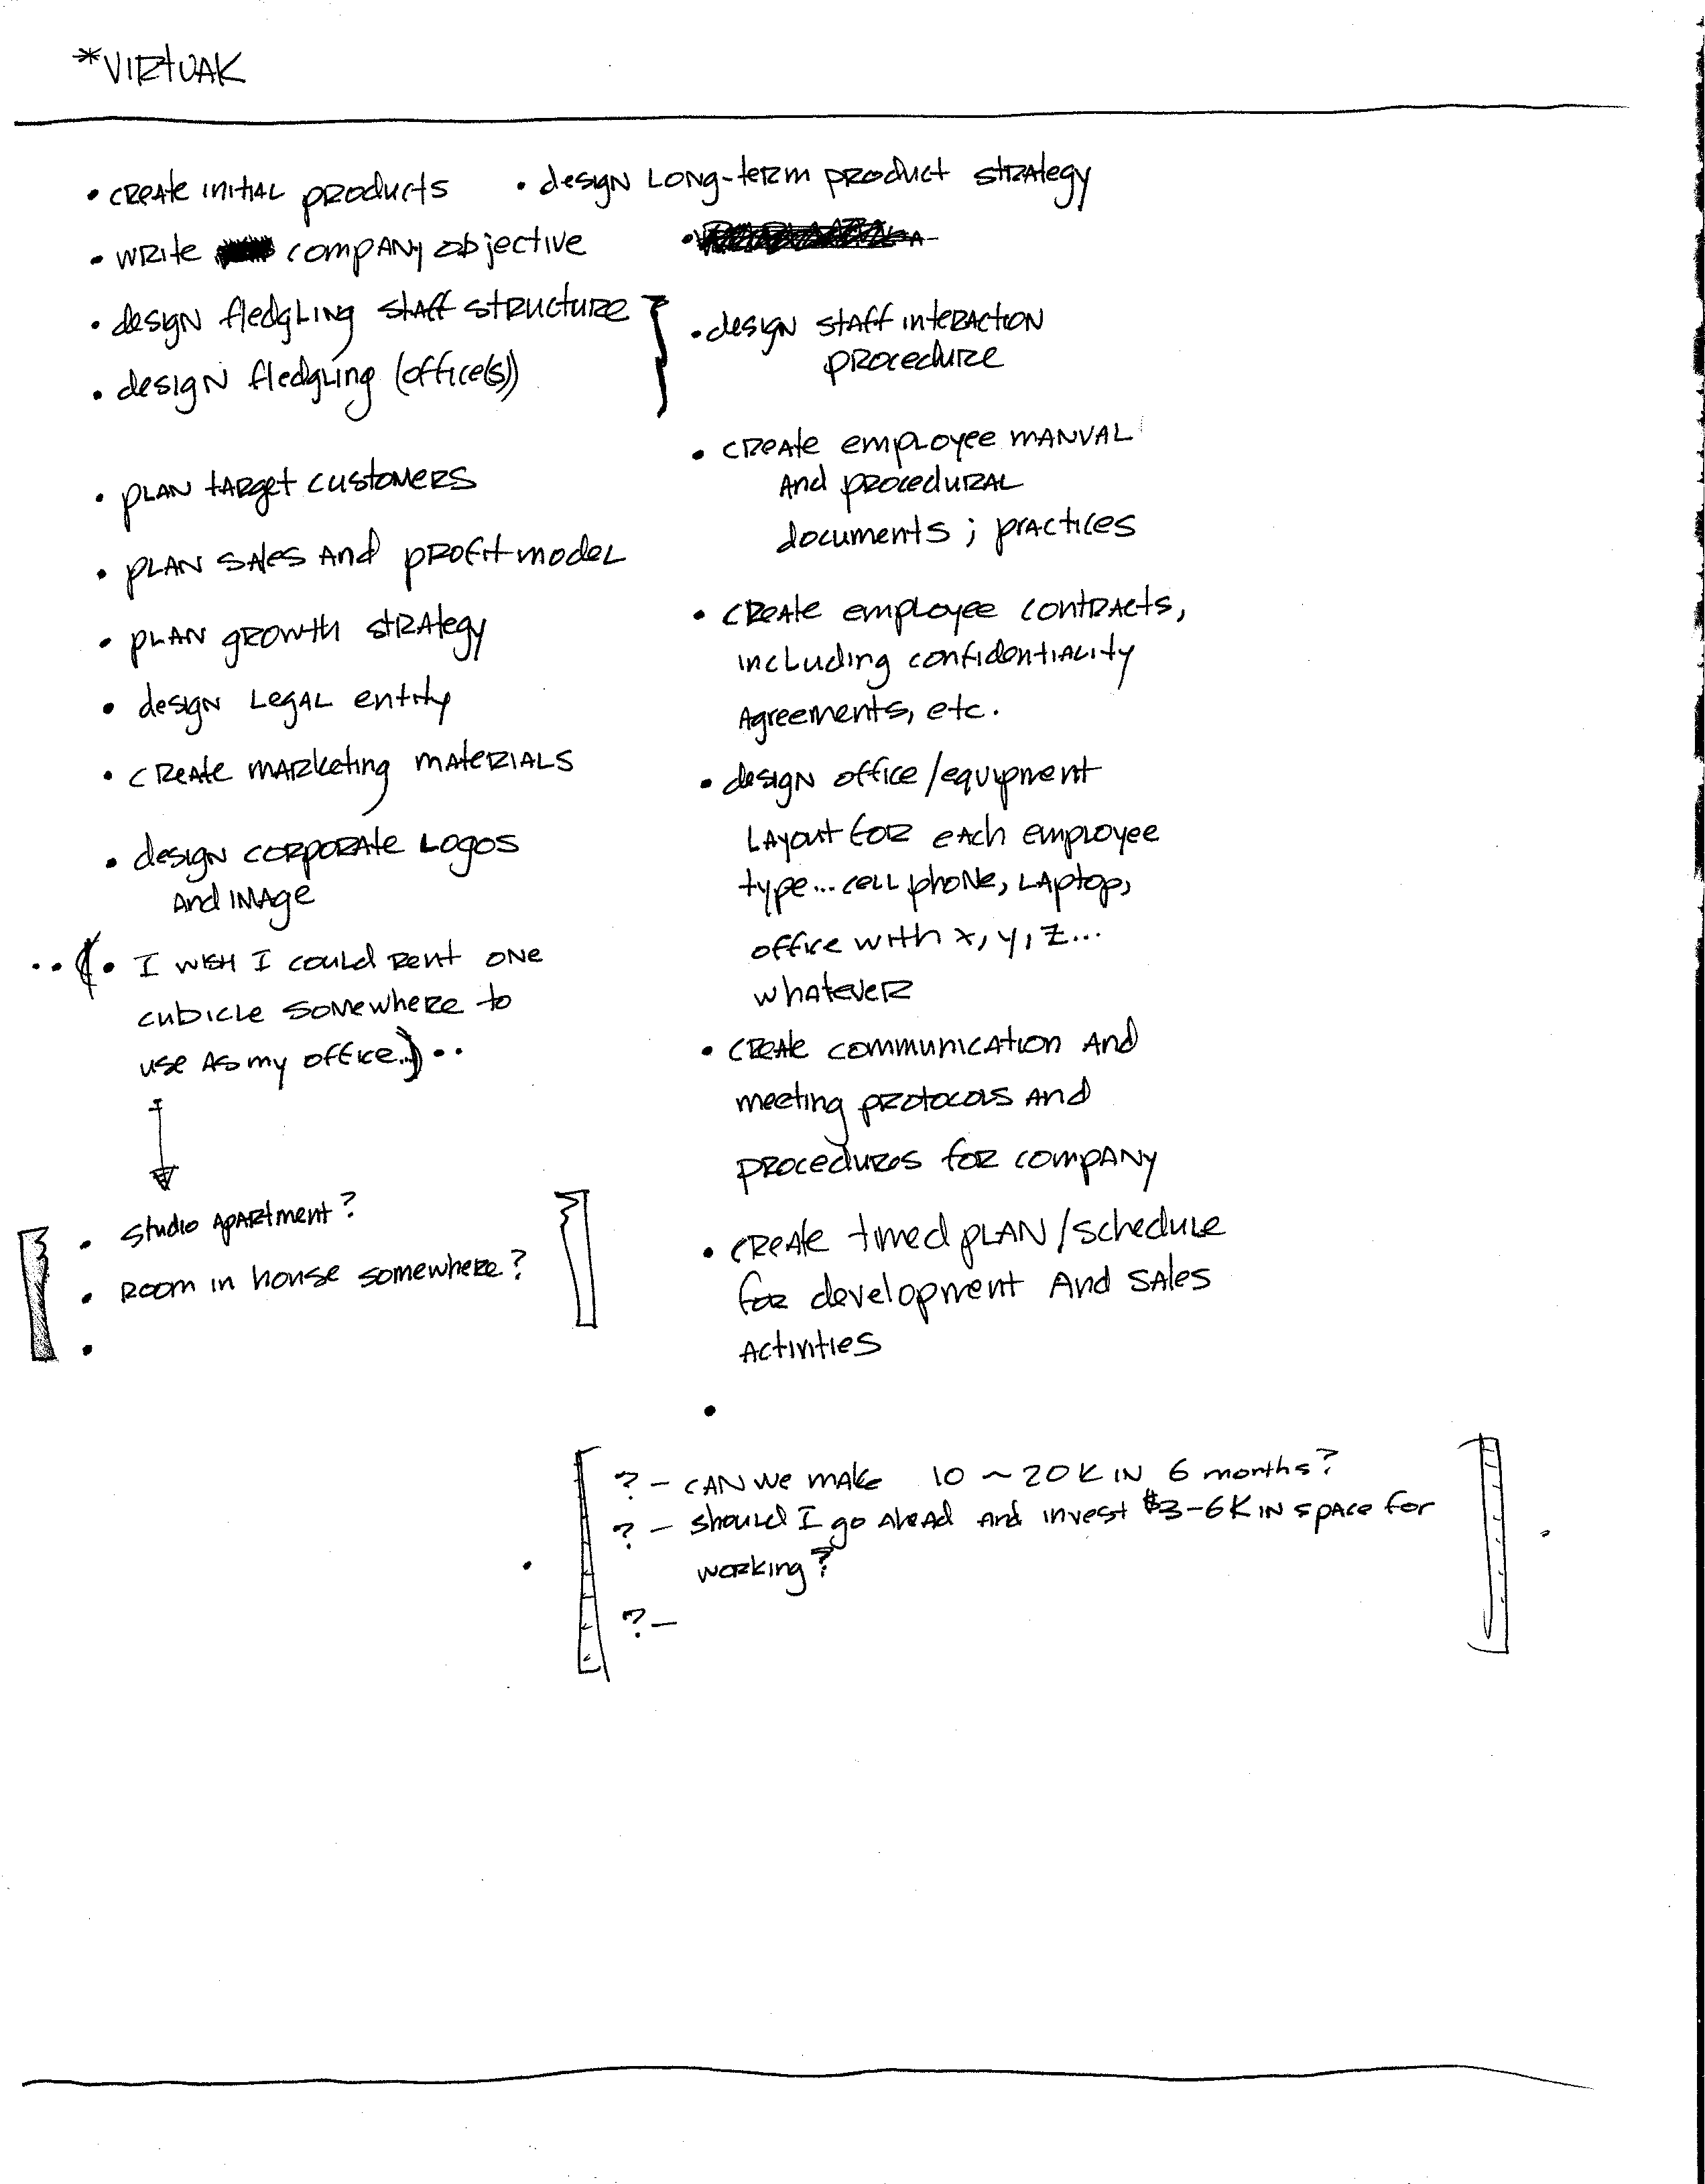 *VIRTUAK
• CREATE INITIAL products
• design LONG-term product strategy
• WRITE company objective
•
• design fledgling staff structure
• design fledgling (office(s))
• design staff interaction
procedure
• PLAN target customers
• PLAN sales and profit model
• PLAN growth strategy
• design legal entity
• create marketing materials
• design corporate logos
and image
..(• I wish I could rent one
cubicle somewhere to
use as my office.)..
• studio apartment?
• room in house somewhere?
•
• create employee manual
and procedural
documents; practices
• create employee contracts,
including confidentiality
agreements, etc.
• design office/equipment
layout for each employee
type... cell phone, laptop,
office with x, y, z...
whatever
• create communication and
meeting protocols and
procedures for company
• create timed plan/schedule
for development and sales
activities
•
? - can we make 10 ~ 20K in 6 months?
? - should I go ahead and invest $3-6K in space for
working?
? -